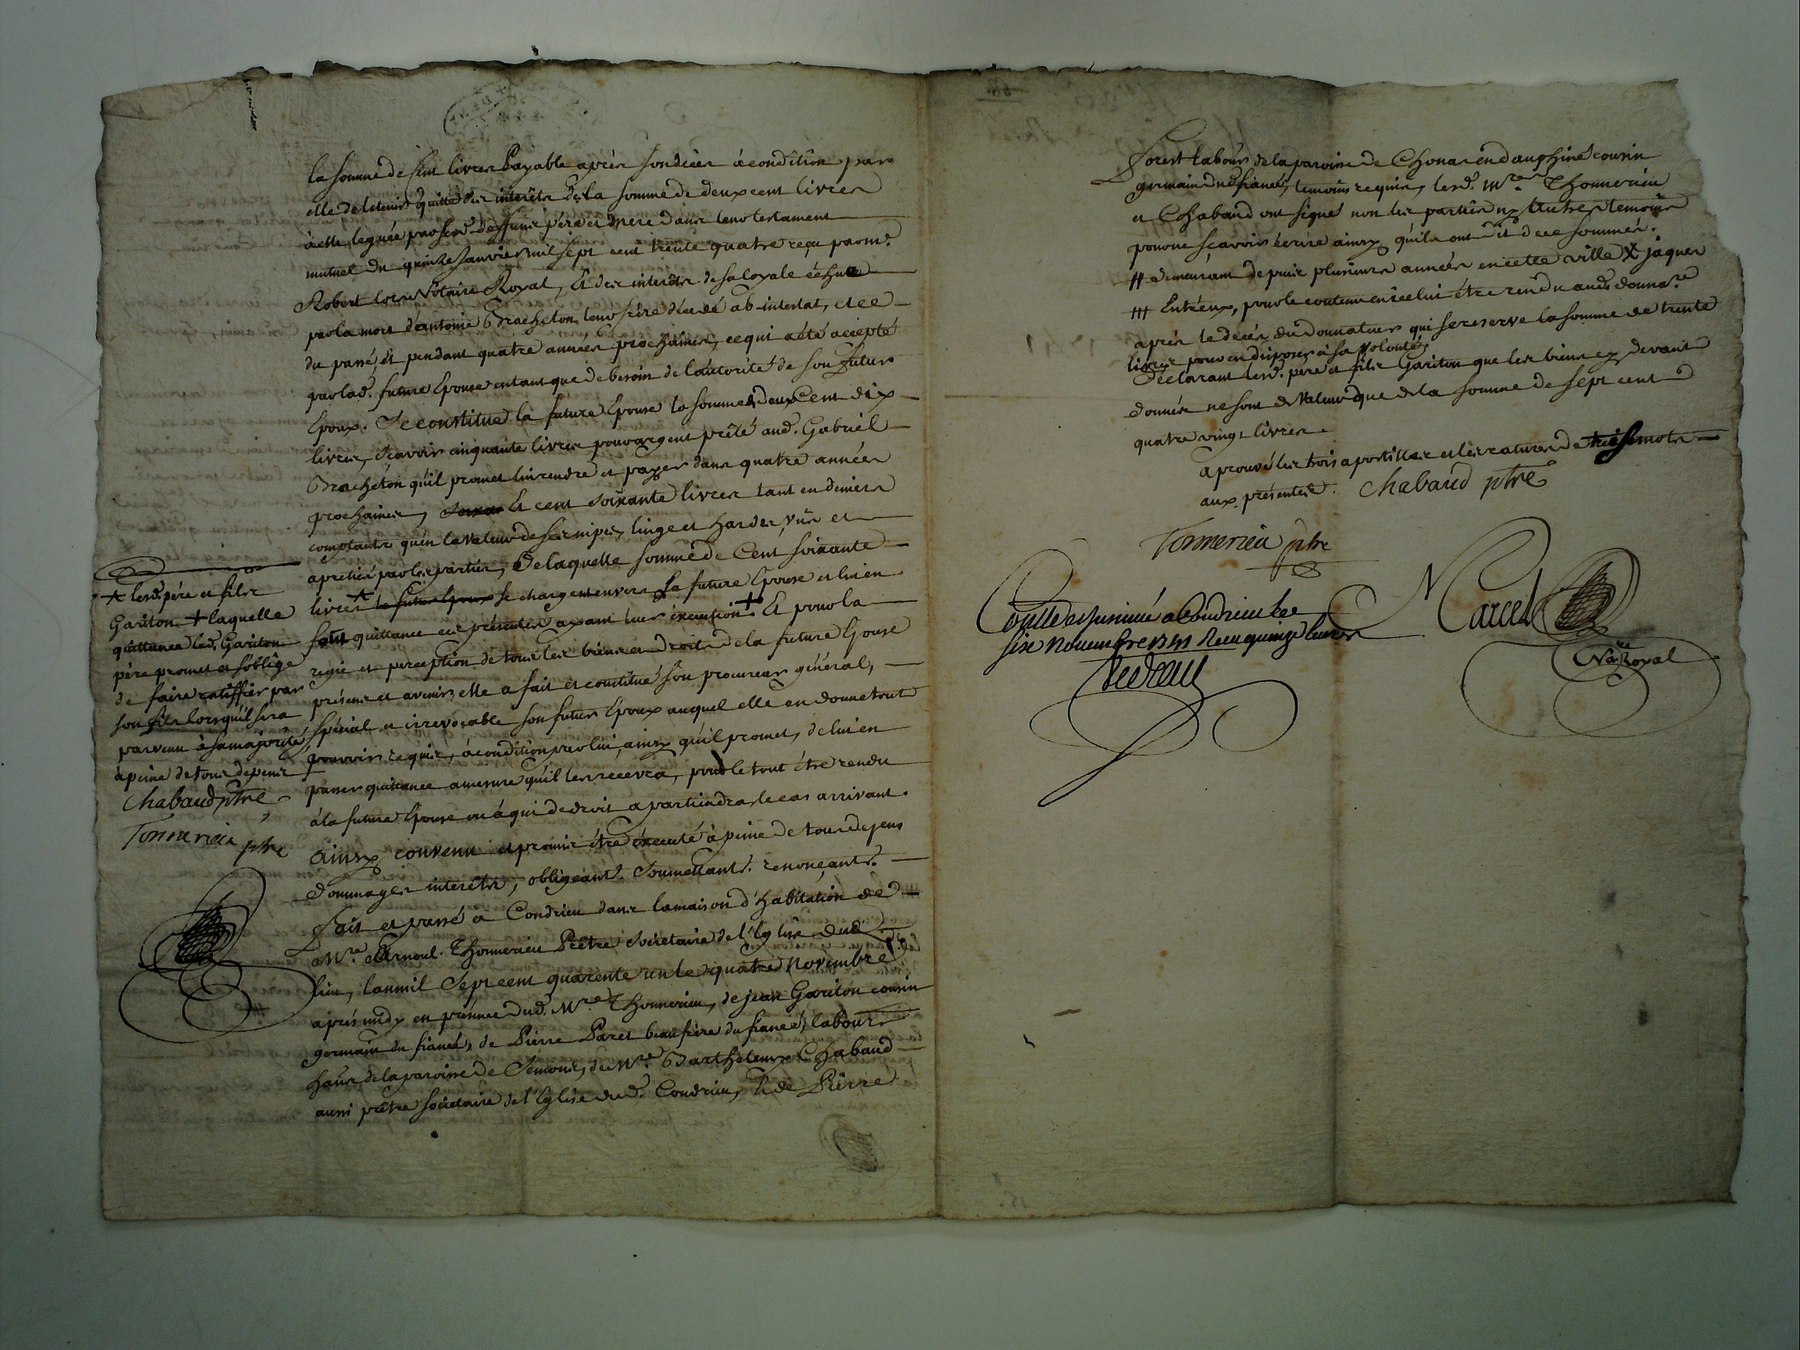 la somme de huit livres payable après son décès à condition par
elle de le tenir quitte des interêts de la somme de deux cent livres
à elle leguée par ses deffunts père et mere dans leur testament
mutuel du quinze janvier mil sept cent trente quatre reçu par m.e
Robert lors Notaire Royal, et des interêts de sa loyale échue
par la mort d'antoine Bracheton leur frère décédé ab-intestat, et ce
du passé, et pendant quatre années prochaines, ce qui a été accepté
par lad. future Epouse entant que de besoin de l'autorité de son futur
Epoux. Se constitue la future Epouse la somme de deux Cent dix
livres, sçavoir cinquante livres pour argent prêté aud. Gabriel
Bracheton qu'il promet lui rendre et payer dans quatre années
prochaines, et cent soixante livres tant en deniers
comptants qu'en la valeur de ses nipes, linge et hardes, vûs et
apretiés par les parties, de laquelle somme de Cent soixante
livres le futur Epoux se chargent envers la future Epouse et lui en
font quittance ces présentes ayant leur éxecution + Et pour la
regie et perception de tous les biens et droits de la future Epouse
présents et avenir, elle a fait et constitué son procureur général,
spécial et irrevocable son futur Epoux auquel elle en donne tout
pouvoir requis, à condition par lui, ainsy qu'il promet, de lui en
passer quittance a mesure qu'il les recevra, pour le tout être rendu
à la future Epouse ou à qui de droit apartiendra le cas arrivant.
ainsy convenu et promis être éxecuté à peine de tous depens
dommages interêts, obligeant. Soumettant. renonçant.
Fait et passé à Condrieu dans la maison d'habitation de
M.re Arnoul Thonnerieu Prêtre Societaire de l'Eglise dud.
lieu, l'an mil sept cent quarente un le quatre Novembre
après midy en présence dud. M.re Thonnerieu, de jean Gariton cousin
germain du fiancé, de Pierre Paret beaufrère du fiancé, labour
hau de la paroisse de Semons, de M.re Barthelemy Chabaud
aussi prêtre societaire de l'Eglise dud. Condrieu, Et de Pierre
lesd. père et fils
Gariton + laquelle
quittance led. Gariton
père promet et s'oblige
de faire ratiffier par
son fils lorsqu'il sera
parvenu à sa majorité,
à peine de tous depens
Chabaud ptre
Tonnerieu ptre
Forest labour de la paroisse de Chonas en dauphiné cousin
germain desd. fiancés, temoins requis, lesd. M.re Thonnerieu
et Chabaud ont signé non les parties ny autres temoins
pour ne sçavoir écrire ainsy qu'ils ont dit de ce sommés.
# demeurant depuis plusieurs années en cette ville X jaques
### Entr'eux, pour le contenu en icelui être rendu aud. donat.re
après le decès du Donnateur qui se reserve la somme de trente
livres pour en disposer à sa volonté
Déclarant lesd. pere et fils Gariton que les biens cy devant
donnés ne sont de Valeur que de la somme de sept cent
quatre vingt livres.
aprouvé les trois apostilles et les ratures de mots
aux présentes. Chabaud ptre
Tonnerieu ptre
Controllé et insinué a Condrieu le
six novembre 1741 Receu quinze livres
Marcel
N.re Royal